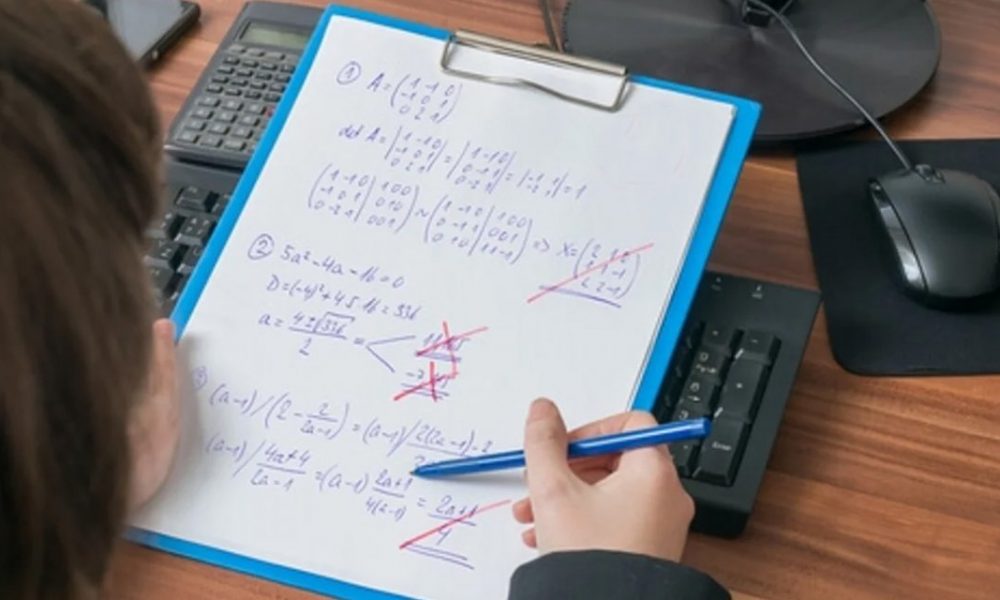 ① A = (1 -1 0
-1 0 1
0 2 1)
det A = |1 -1 0
-1 0 1
0 2 1| = |1 -1 0
0 -1 1
0 -2 1| = |-1 1
-2 1| = 1
(1 -1 0 | 1 0 0
-1 0 1 | 0 1 0
0 -2 1 | 0 0 1) ~ (1 -1 0 | 1 0 0
0 -1 1 | 0 0 1
0 1 0 | 1 1 -1) => X =
② 5a² - 4a - 16 = 0
D = (-4)² + 4 5 16 = 336
a = (4 ± √336) / 2 =
(a-1) / (2 - 2/(2a-1)) = (a-1) / 2(2a-1)-2
(a-1) / (4a+4)/(2a-1) = (a-1) (2a+1)/4(a-1) = (2a+1)/4